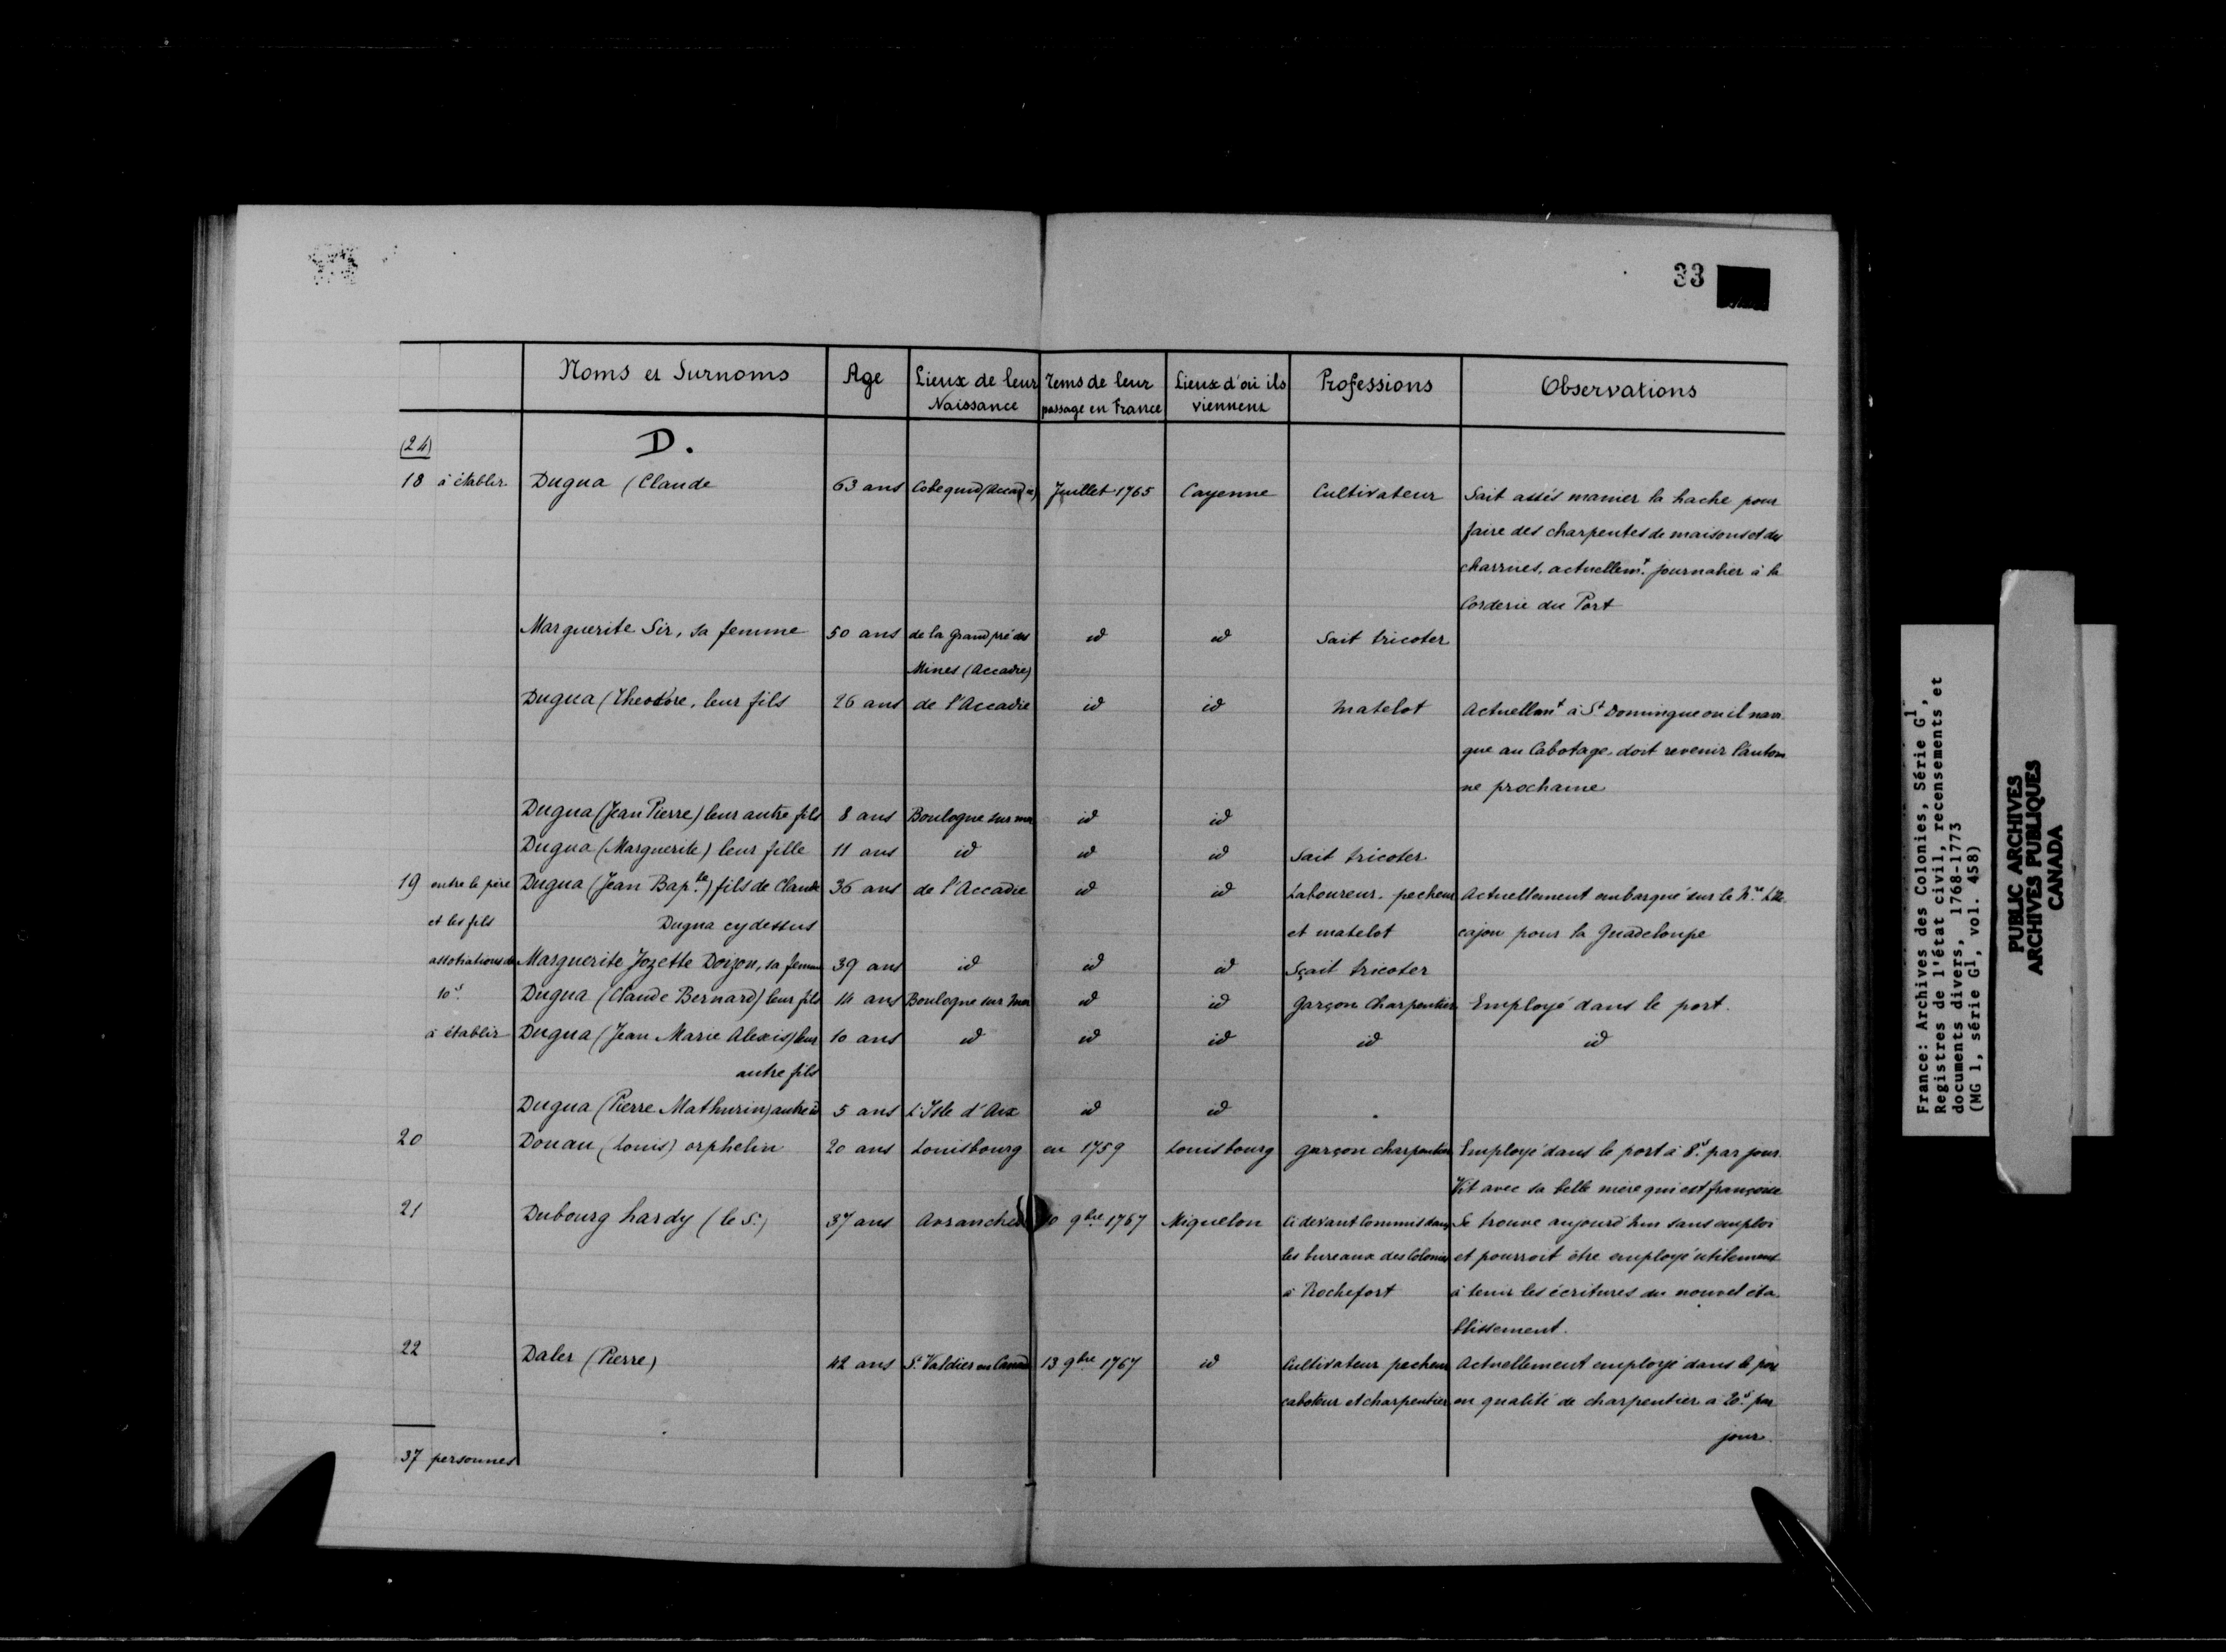 33
Noms et Surnoms | Age | Lieux de leur Naissance | Tems de leur passage en France | Lieux d'où ils viennent | Professions | Observations
(24) D.
18 à établir Dugua (Claude 63 ans Cobequid (Accadie) Juillet 1765 Cayenne Cultivateur Sait assés manier la hache pour
faire des charpentes de maisons et des
charrues, actuellemt. journalier à la
Corderie du Port
Marguerite Sir, sa femme 50 ans de la Grand pré des id id Sait tricoter
Mines (Accadie)
Dugua (Theodore, leur fils 26 ans de l'Accadie id id Matelot Actuellemt à St Domingue ou il navi-
gue au Cabotage, doit revenir l'autom
ne prochaine
Dugua (Jean Pierre) leur autre fils 8 ans Boulogne sur mer id id
Dugua (Marguerite) leur fille 11 ans id id id Sait tricoter
19 entre le père Dugua (Jean Bapte.) fils de Claude 36 ans de l'Accadie id id Laboureur, pecheur Actuellement embarqué sur le Nre
et les fils Dugua cy dessus et matelot cajou pour la Guadeloupe
Marguerite Jozette Doizon, sa femme 39 ans id id id Sçait tricoter
10s. Dugua (Claude Bernard) leur fils 14 ans Boulogne sur Mer id id garçon Charpentier Employé dans le port.
à établir Dugua (Jean Marie Alexis) leur 10 ans id id id id id
autre fils
Dugua (Pierre Mathurin) autre id 5 ans L'Isle d'Aix id id
20 Douau (Louis) orphelin 20 ans Louisbourg en 1759 Louisbourg garçon charpentier Employé dans le port à 8s. par jour.
Vit avec sa belle mère qui est françoise
21 Dubourg hardy (le Sr.) 37 ans Avranches 10 9bre 1767 Miquelon Ci devant Commis dans Se trouve aujourd'hui sans emploi
les bureaux des Colonies et pourroit être employé utilement
à Rochefort à tenir les écritures du nouvel éta-
blissement.
22 Daler (Pierre) 42 ans St. Valdier en Canada 13 9bre 1767 id Cultivateur pecheur Actuellement employé dans le port
caboteur et charpentier en qualité de charpentier à 20s. par
jour.
37 personnes
France: Archives des Colonies, Série G1,
Registres de l'état civil, recensements et
documents divers, 1768-1773
(MG 1, série G1, vol. 458)
PUBLIC ARCHIVES
ARCHIVES PUBLIQUES
CANADA